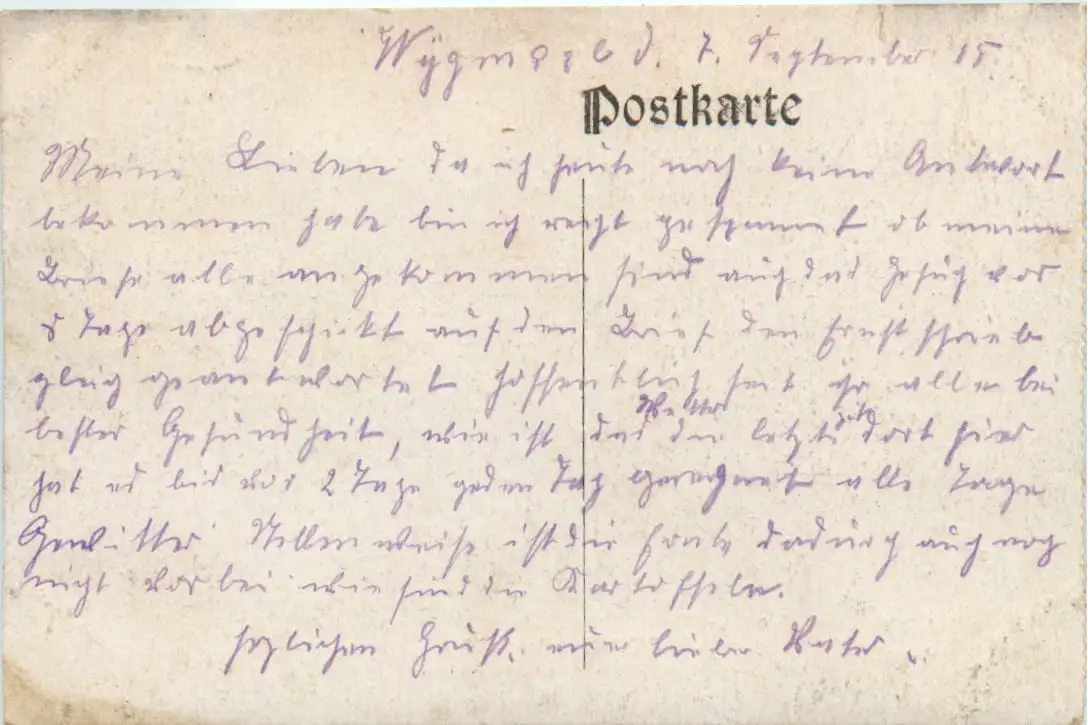 d. 7. September 15.
Postkarte
Meine Lieben da ich heute noch keine Antwort
bekommen habe bin ich recht gespannt ob meine
Briefe alle angekommen sind auch das Gesuch vor
8 Tage abgeschickt auf den Brief den Ernst schrieb
gleich geantwortet hoffentlich seit ihr alle bei
bester Gesundheit, wie ist das Wetter die letzte Zeit dort hier
hat es bis vor 2 Tage geden Tag geregnet alle Tage
Gewitter Stellenweise ist die Ernte dadurch auch noch
nicht vorbei wie sind die Kartoffeln.
herzlichen Gruß. euer lieber Vater.